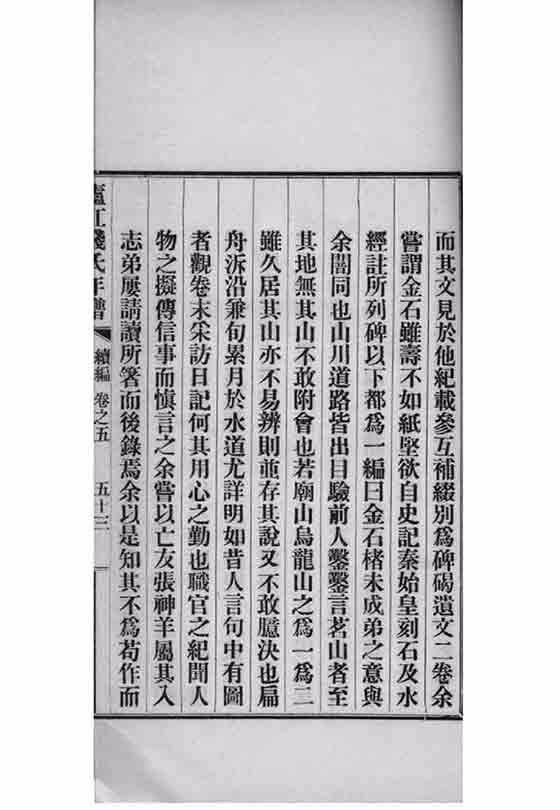 而其文見於他紀載參互補綴別爲碑碣遺文二卷余
嘗謂金石雖壽不如紙堅欲自史記秦始皇刻石及水
經註所列碑以下都爲一編曰金石楮未成弟之意與
余闇同也山川道路皆出目驗前人鑿鑿言茗山者至
其地無其山不敢附會也若廟山烏龍山之爲一爲二
雖久居其山亦不易辨則並存其說又不敢臆決也扁
舟泝沿兼旬累月於水道尤詳明如昔人言句中有圖
者觀卷末采訪日記何其用心之勤也職官之紀聞人
物之擬傳信事而愼言之余嘗以亡友張神羊屬其入
志弟屢請讀所箸而後錄焉余以是知其不爲苟作而
廬江錢氏年譜 續編 卷之五 五十三